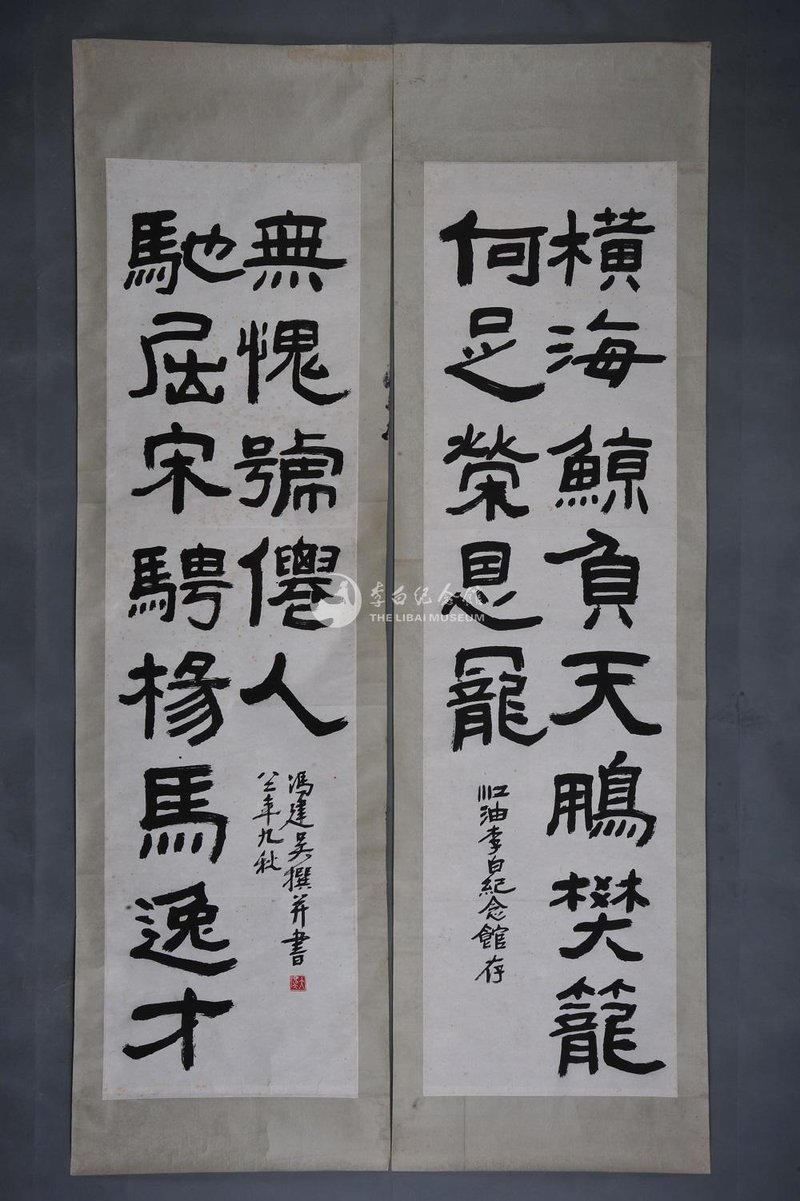 橫海鯨負天鵬樊籠
何足榮恩寵
江油李白紀念館存
馳屈宋騁楊馬逸才
無愧號僊人
馮建吳撰并書
八二年九秋
李白纪念馆
THE LIBAI MUSEUM